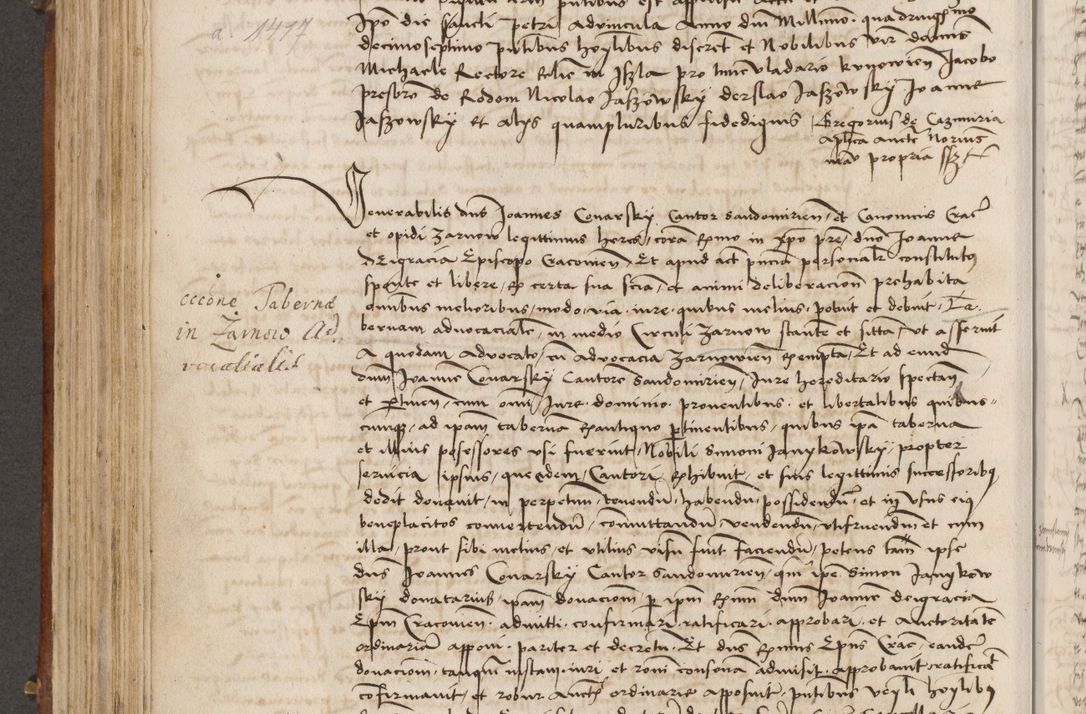 a. 1417
Ipō die Sancti Petri Advincula Anno dni Millmo. quadringmo
decimoseptimo pntibus hoȳlibus discret et Nobilibus vir dominis
Michaele Rectore Eclie in Ilza pro tunc vladario kunowien Jacobo
presbro de Radom Nicolao Jaszowsky derslao Jaszowsky Joanne
Jaszowsky et alys quampluribus fidedignis Gregorius de Cazimiria
Aplica Aucte Norius
manu propria sszt
Venerabilis dns Joannes Conarsky Cantor Sandomirien, et Canonicus Crac
et opidi Zarnow legittimus heres, corā Rmo in xpo pre, dno Joanne
deigracia Episcopo Cracovien, Et apud act pncia personalr constitutus
sponte et libere, ex certa sua scia, et animi deliberacion prehabita
omnibus melioribus, modo, via, iure, quibus melius, potuit et debuit, Ta-
bernam advocaciale, in medio Circuli Zarnow stante et sitta, ut asseruit
A quodam Advocato, cū Advocacia Zarnowien exempta, Et ad eund
dnm Joanne Conarsky Cantore Sandomirien, Iure hereditario spectan
et ptinen, cum omi Iure. dominio. proventibus. et libertatibus quibus-
cunque, ad ipam taberna exantiquo ptinentibus, quibus ipa taberna
et illius posessores usi fuerint, Nobili Simoni Janykowsky, propter
servicia ipsius, que idem, Cantori exhibuit, et suis legittimis successoribus
dedit donavit, in perpetuu, tenendu, habendu, possidendu, et in usus eius
beneplacitos convertendu, comuttandu vendendu, utifruendum et cum
illa, prout sibi melius, et utilius visu fuit faciendu, petens tam ipse
dns Joannes Conarsky Cantor Sandomirien, qm ipe Simon Janykow
sky donatarius, ipam donacione, p ipm Rmu dnm Joanne deigracia
Epm Cracovien. admitti. confirmari. ratificari. approbari. et Auctoritate
ordinaria apponi. pariter et decretu, Et dns Rmus Epus Crac, eande
donacion, tanqu iustam iuri et roni consona admisit. approbavit ratificat
cofirmavit, et robur Aucte ordinarie apposuit, pntibus veneli hoylibus
ccione Tabernæ
in Zarnow Ad
vocatialis